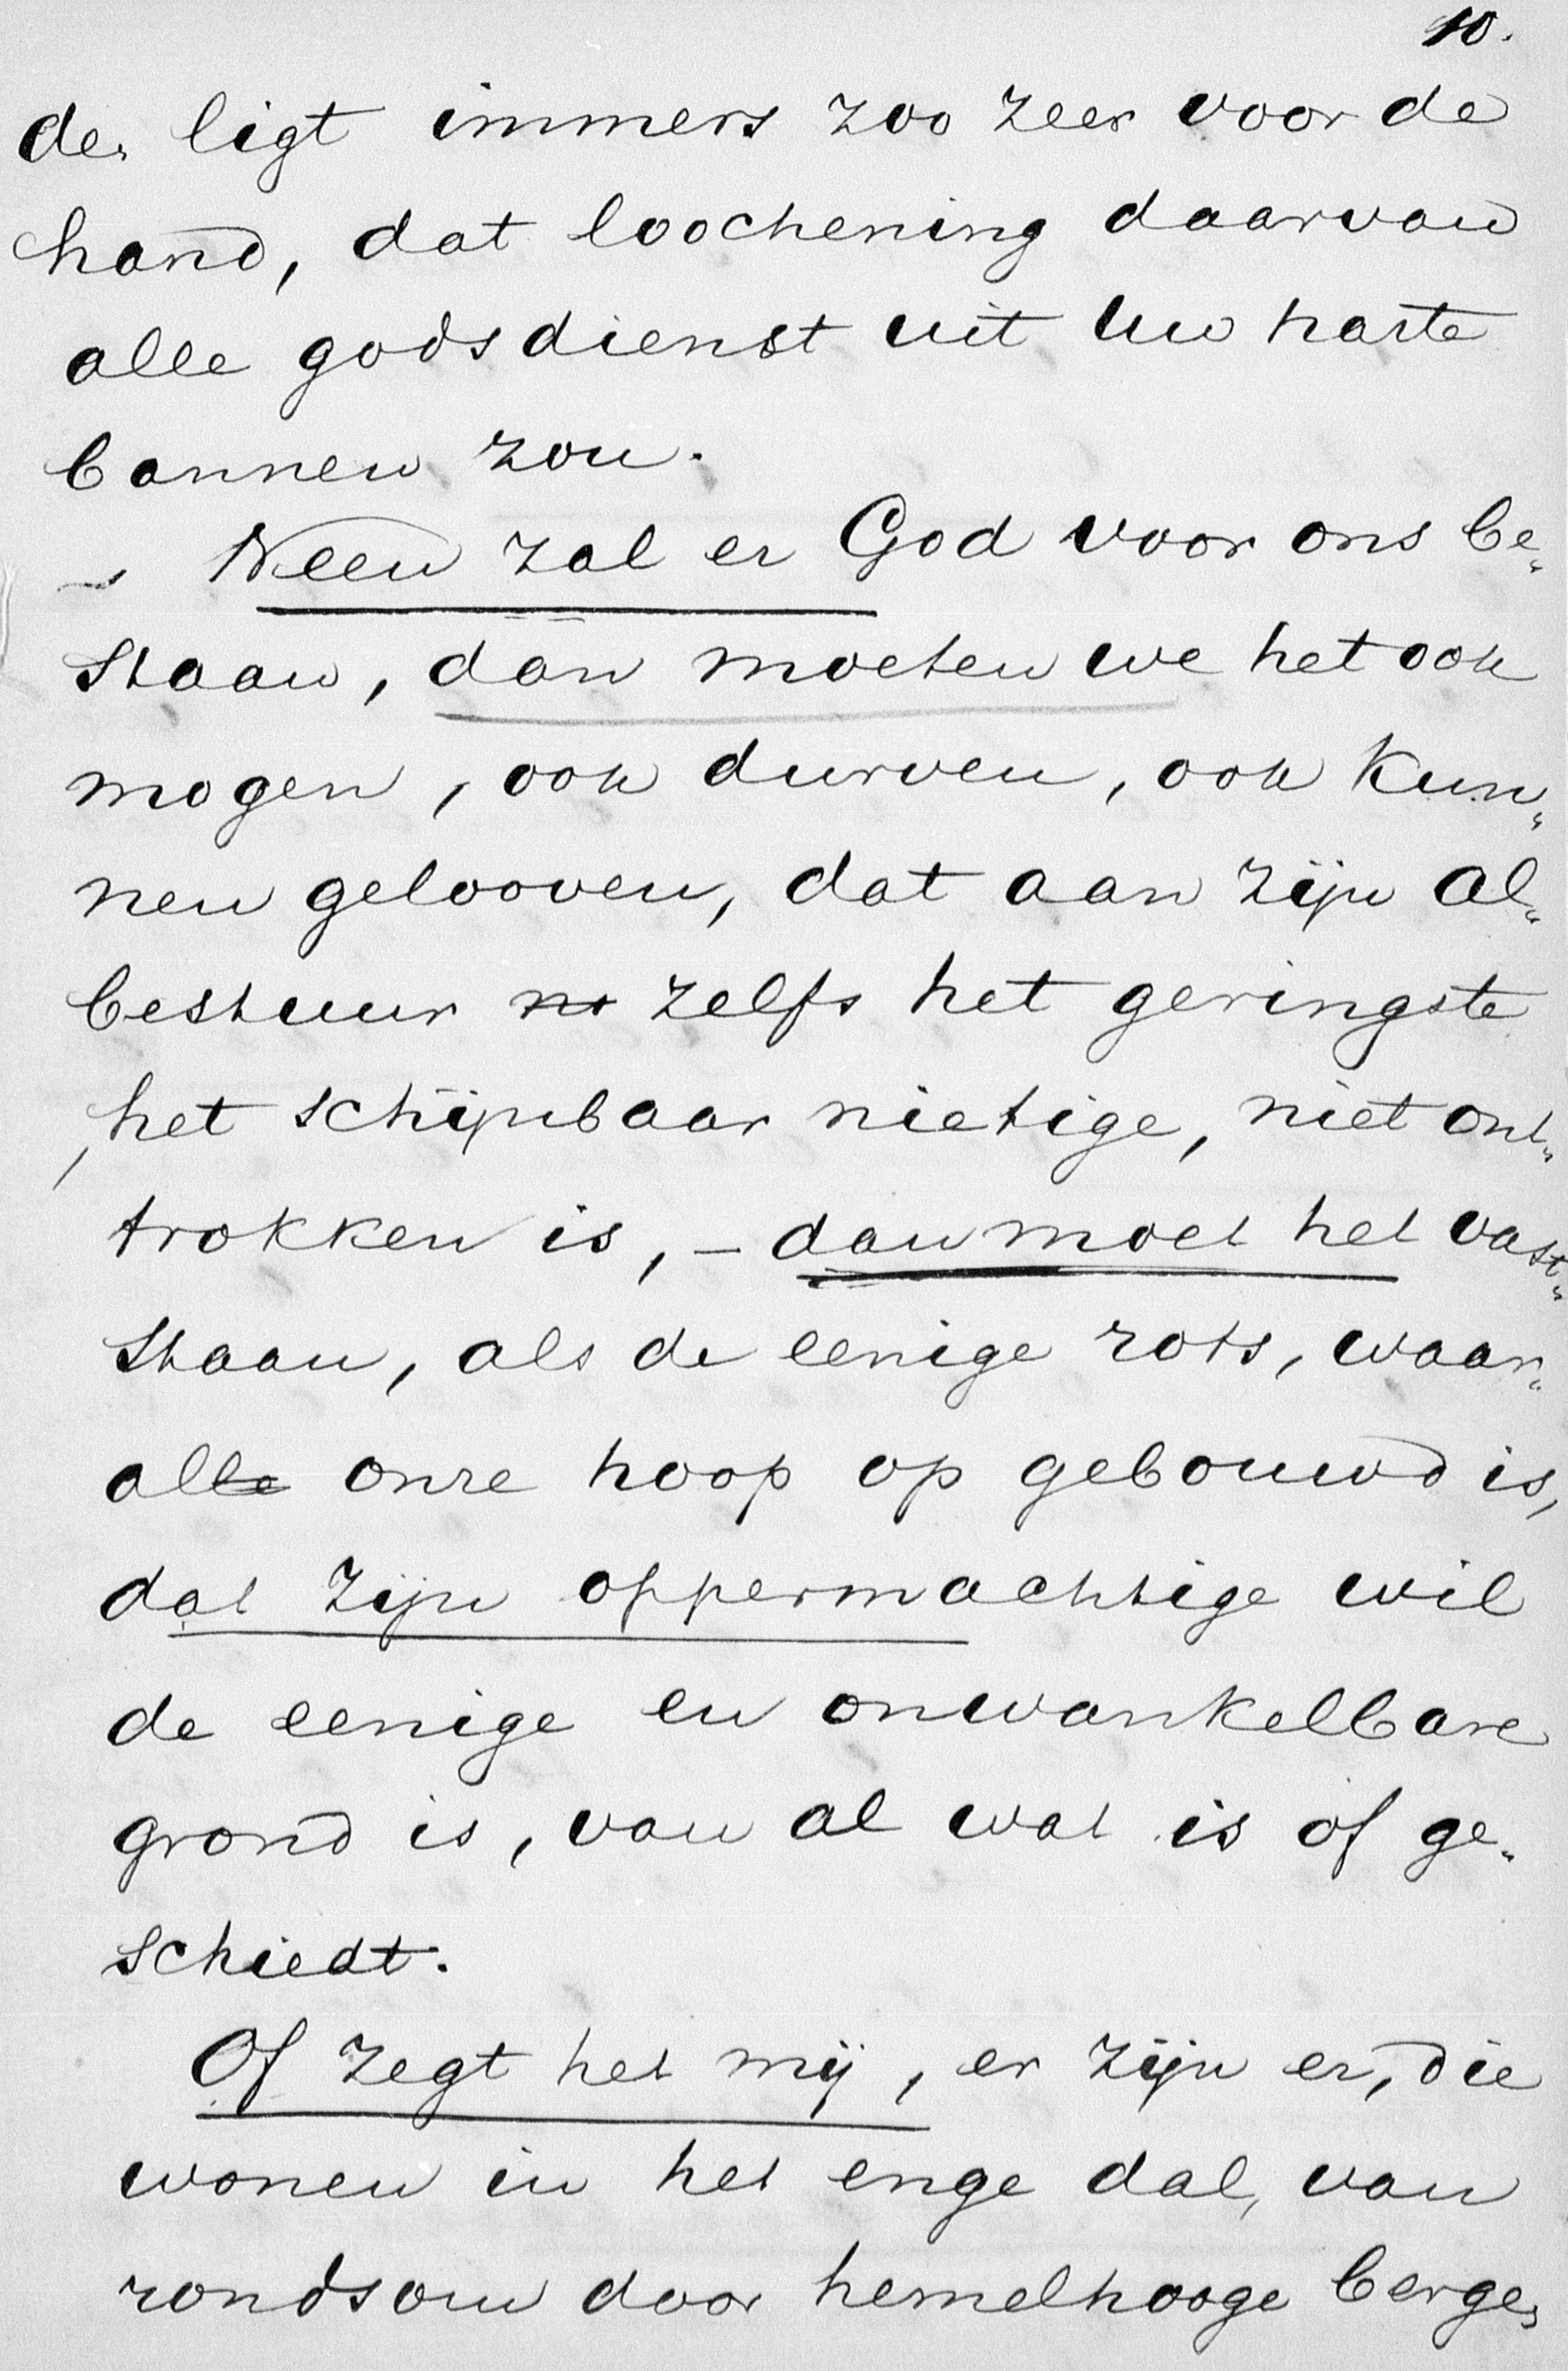 10.
de, ligt immers zoo zeer voor de
hand, dat loochening daarvan
alle godsdienst uit Uw harte
bannen zou.
Neen zal er God voor ons be„
staan, dan moeten we het ook
mogen, ook durven, ook kun„
nen gelooven, dat aan zijn Al„
bestuur no zelfs het geringste
, het schijnbaar nietige, niet ont„
trokken is, – dan moet het vast„
staan, als de eenige rots, waar„
alle onze hoop op gebouwd is,
dat zijn oppermachtige wil
de eenige en onwankelbare
grond is, van al wat is of ge„
schiedt.
Of zegt het mij, er zijn er, die
wonen in het enge dal, van
rondsom door hemelhooge berge„